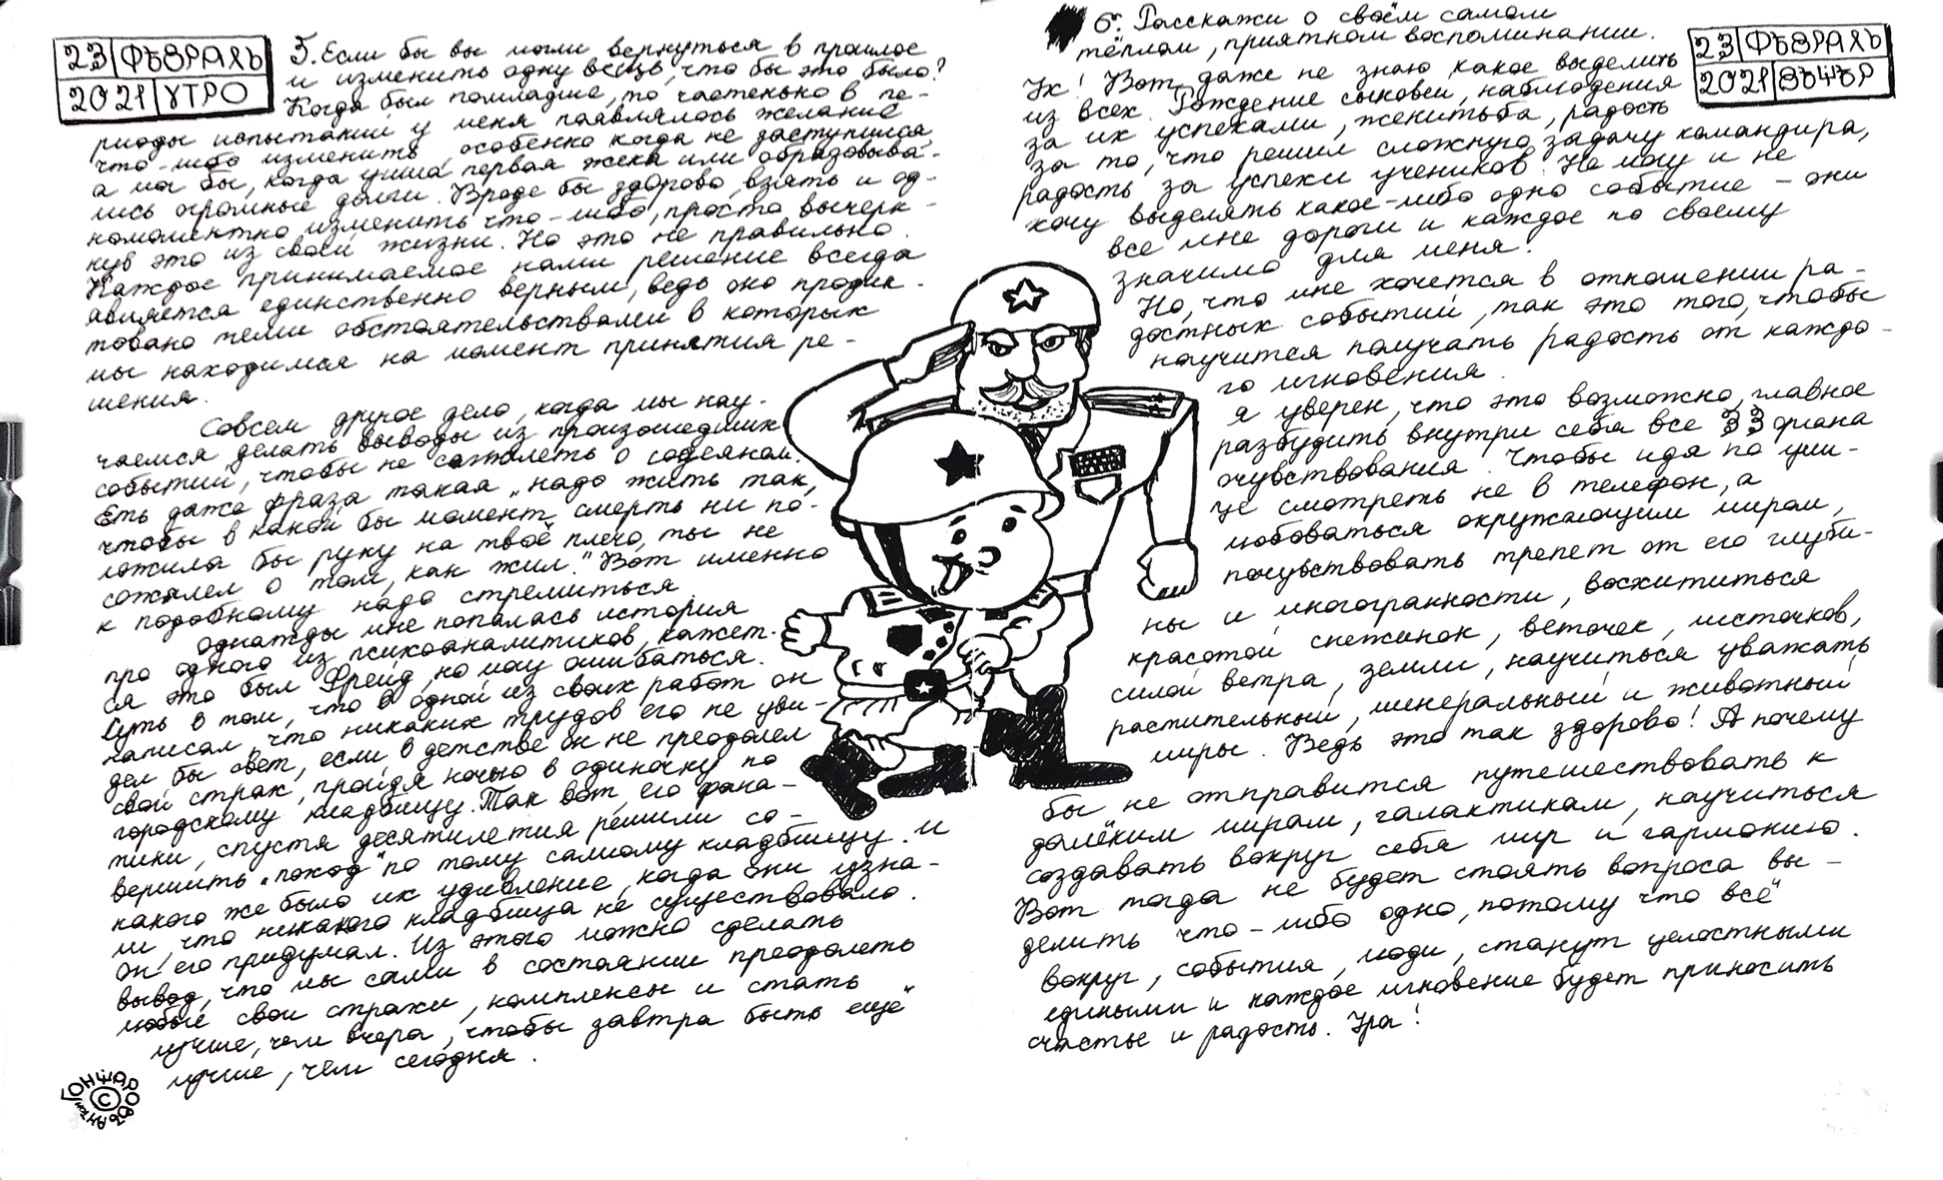 23 ФЪВРАЛЬ
2021 УТРО
5. Если бы вы могли вернуться в прошлое
и изменить одну вещь, что бы это было?
Когда был помладше, то частенько в пе-
риоды испытаний у меня появлялось желание
что-либо изменить, особенно когда не заступился,
а мог бы, когда ушла первая жена или образовыва-
лись огромные долги. Вроде бы здорово взять и од-
номоментно изменить что-либо, просто вычерк-
нув это из своей жизни. Но это не правильно.
Каждое принимаемое нами решение всегда
является единственно верным, ведь оно продик-
товано теми обстоятельствами в которых
мы находимся на момент принятия ре-
шения.
Совсем другое дело, когда мы нау-
чаемся делать выводы из произошедших
событий, чтобы не сожалеть о содеяном.
Еть даже фраза такая „надо жить так,
чтобы в какой бы момент смерть ни по-
ложила бы руку на твоё плечо, ты не
сожалел о том, как жил." Вот именно
к подобному надо стремиться
Однажды мне попалась история
про одного из психоаналитиков, кажет-
ся это был Фрейд, но могу ошибаться.
Суть в том, что в одной из своих работ он
написал, что никаких трудов его не уви-
дел бы свет, если в детстве он не преодолел
свой страх, пройдя ночью в одиночку по
городскому кладбищу. Так вот, его фана-
тики, спустя десятилетия решили со-
вершить „поход" по тому самому кладбищу. И
каково же было их удивление, когда они узна-
ли, что никакого кладбища не существовало.
Он его придумал. Из этого можно сделать
вывод, что мы сами в состоянии преодолеть
любые свои страхи, комплексы и стать
лучше, чем вчера, чтобы завтра быть ещё
лучше, чем сегодня.
6. Расскажи о своём самом
тёплом, приятном воспоминании.
23 ФЪВРАЛЬ
2021 ВЪЧЪР
Ух! Вот даже не знаю какое выделить
из всех. Рождение сыновей, наблюдения
за их успехами, женитьба, радость
за то, что решил сложную задачу командира,
радость за успехи учеников. Не могу и не
хочу выделять какое-либо одно событие – они
все мне дороги и каждое по своему
значимо для меня!
Но, что мне хочется в отношении ра-
достных событий, так это того, чтобы
научится получать радость от каждо-
го мгновения.
Я уверен, что это возможно, главное
разбудить внутри себя все 33 органа
очувствования. Чтобы идя по ули-
це смотреть не в телефон, а
любоваться окружающим миром,
почувствовать трепет от его глуби-
ны и многогранности, восхититься
красотой снежинок, веточек, листочков,
силой ветра, земли, научиться уважать
растительный, минеральный и животный
миры. Ведь это так здорово! А почему
бы не отправится путешествовать к
далёким мирам, галактикам, научиться
создавать вокруг себя мир и гармонию.
Вот тогда не будет стоять вопроса вы-
делить что-либо одно, потому что всё
вокруг, события, люди, станут целостными
едиными и каждое мгновение будет приносить
счастье и радость. Ура!